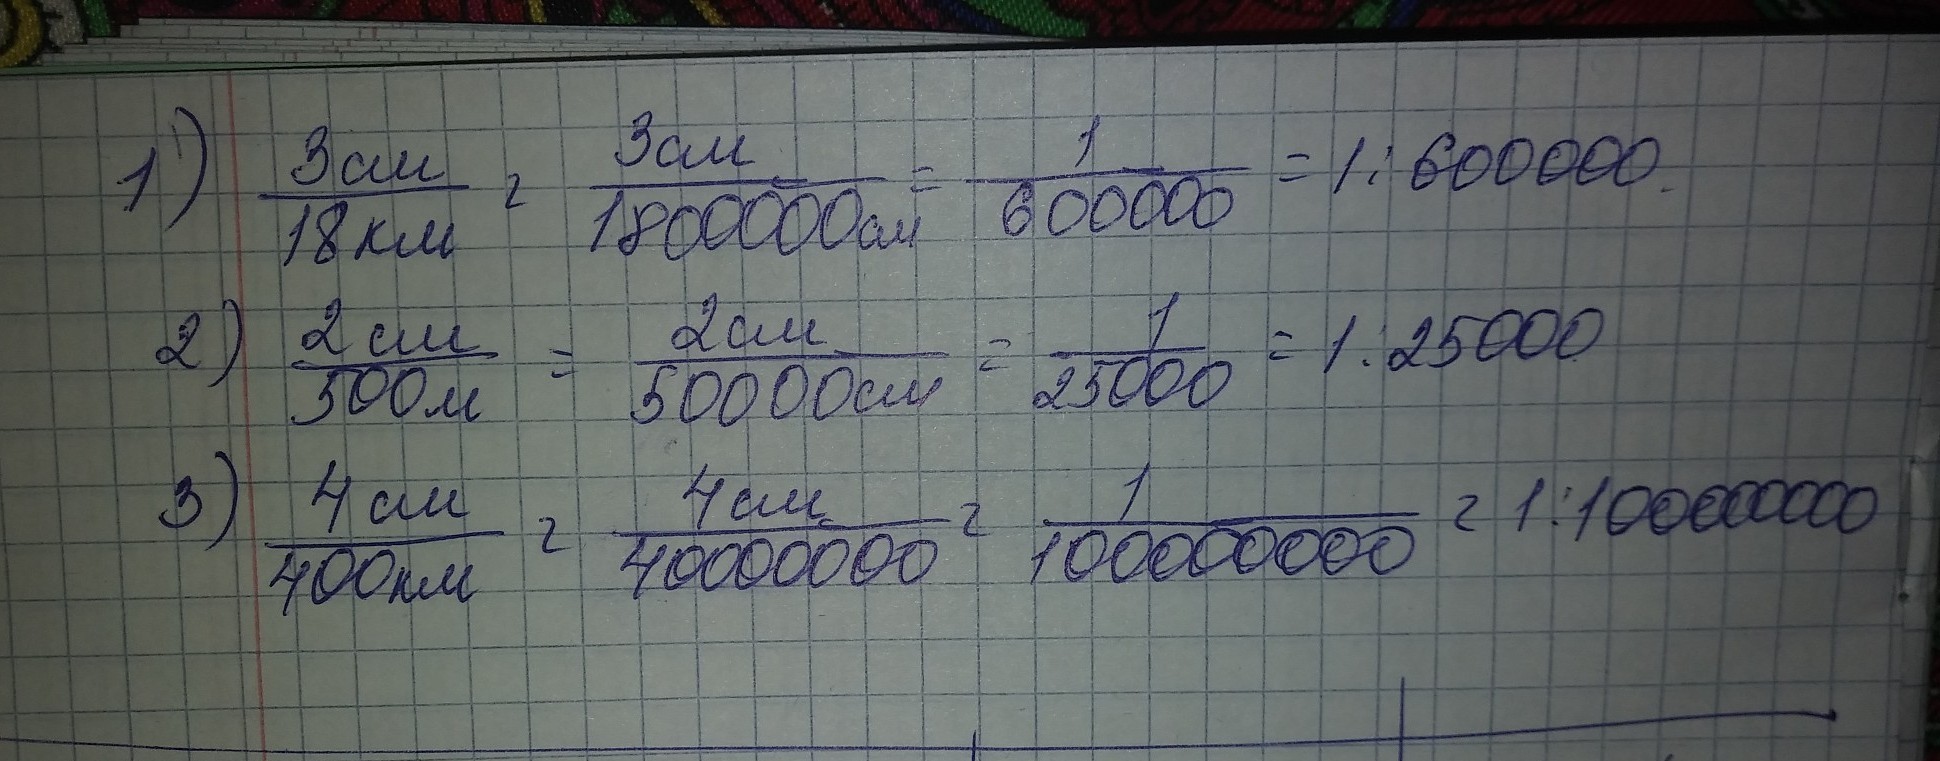 1) 3см/18км = 3см/1800000см = 1/600000 = 1:600000.
2) 2см/500м = 2см/50000см = 1/25000 = 1:25000
3) 4см/400км = 4см/40000000 = 1/100000000 = 1:100000000